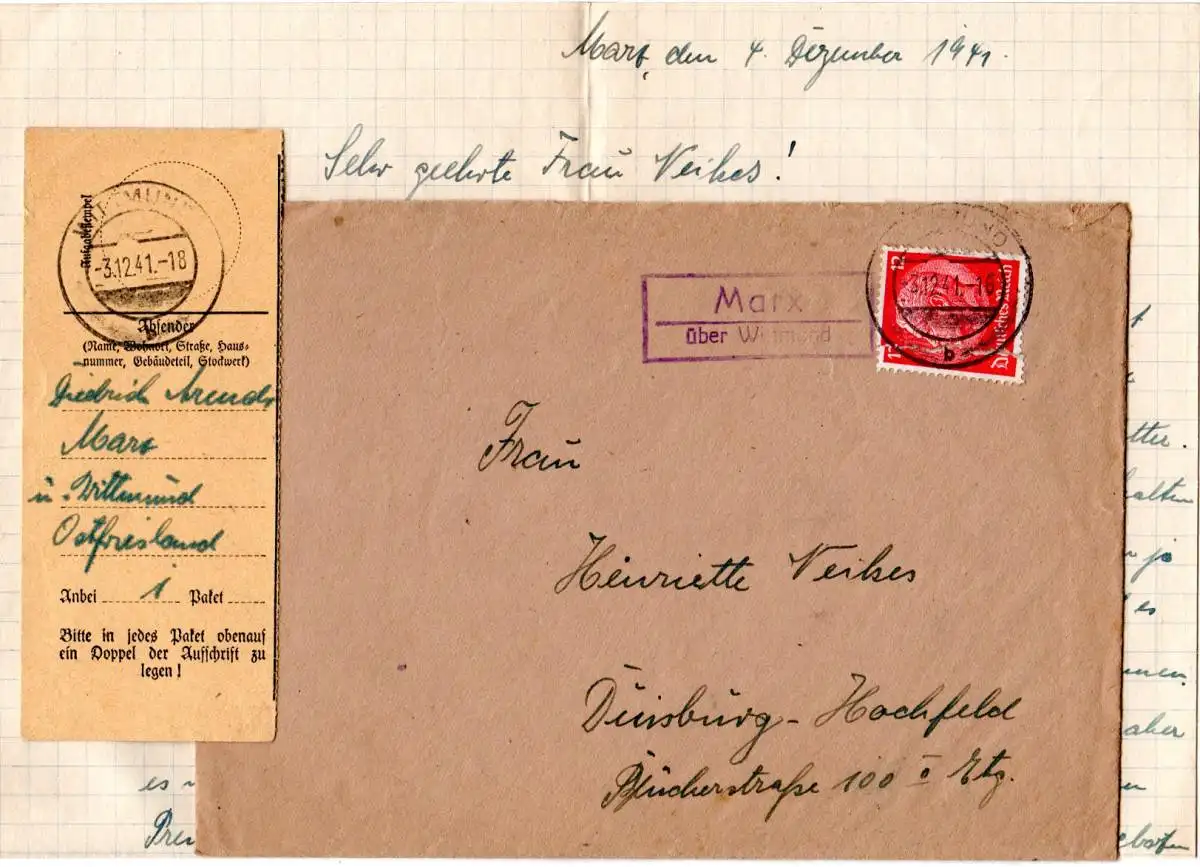 Marx, den 4. Dezember 1941.
Sehr geehrte Frau Veikes!
WITTMUND
-3.12.41.-18
b
Aufgabestempel
Absender
(Name, Wohnort, Straße, Haus-
nummer, Gebäudeteil, Stockwerk)
Diedrich Arends
Marx
ü. Wittmund
Ostfriesland
Anbei 1 Paket
Bitte in jedes Paket obenauf
ein Doppel der Aufschrift zu
legen!
Marx
über Wittmund
12
12
Deutsches Reich
3.12.41.-18
b
Frau
Henriette Veikes
Duisburg-Hochfeld
Blücherstraße 100 I Etg.
alten
ja
es
aber
es